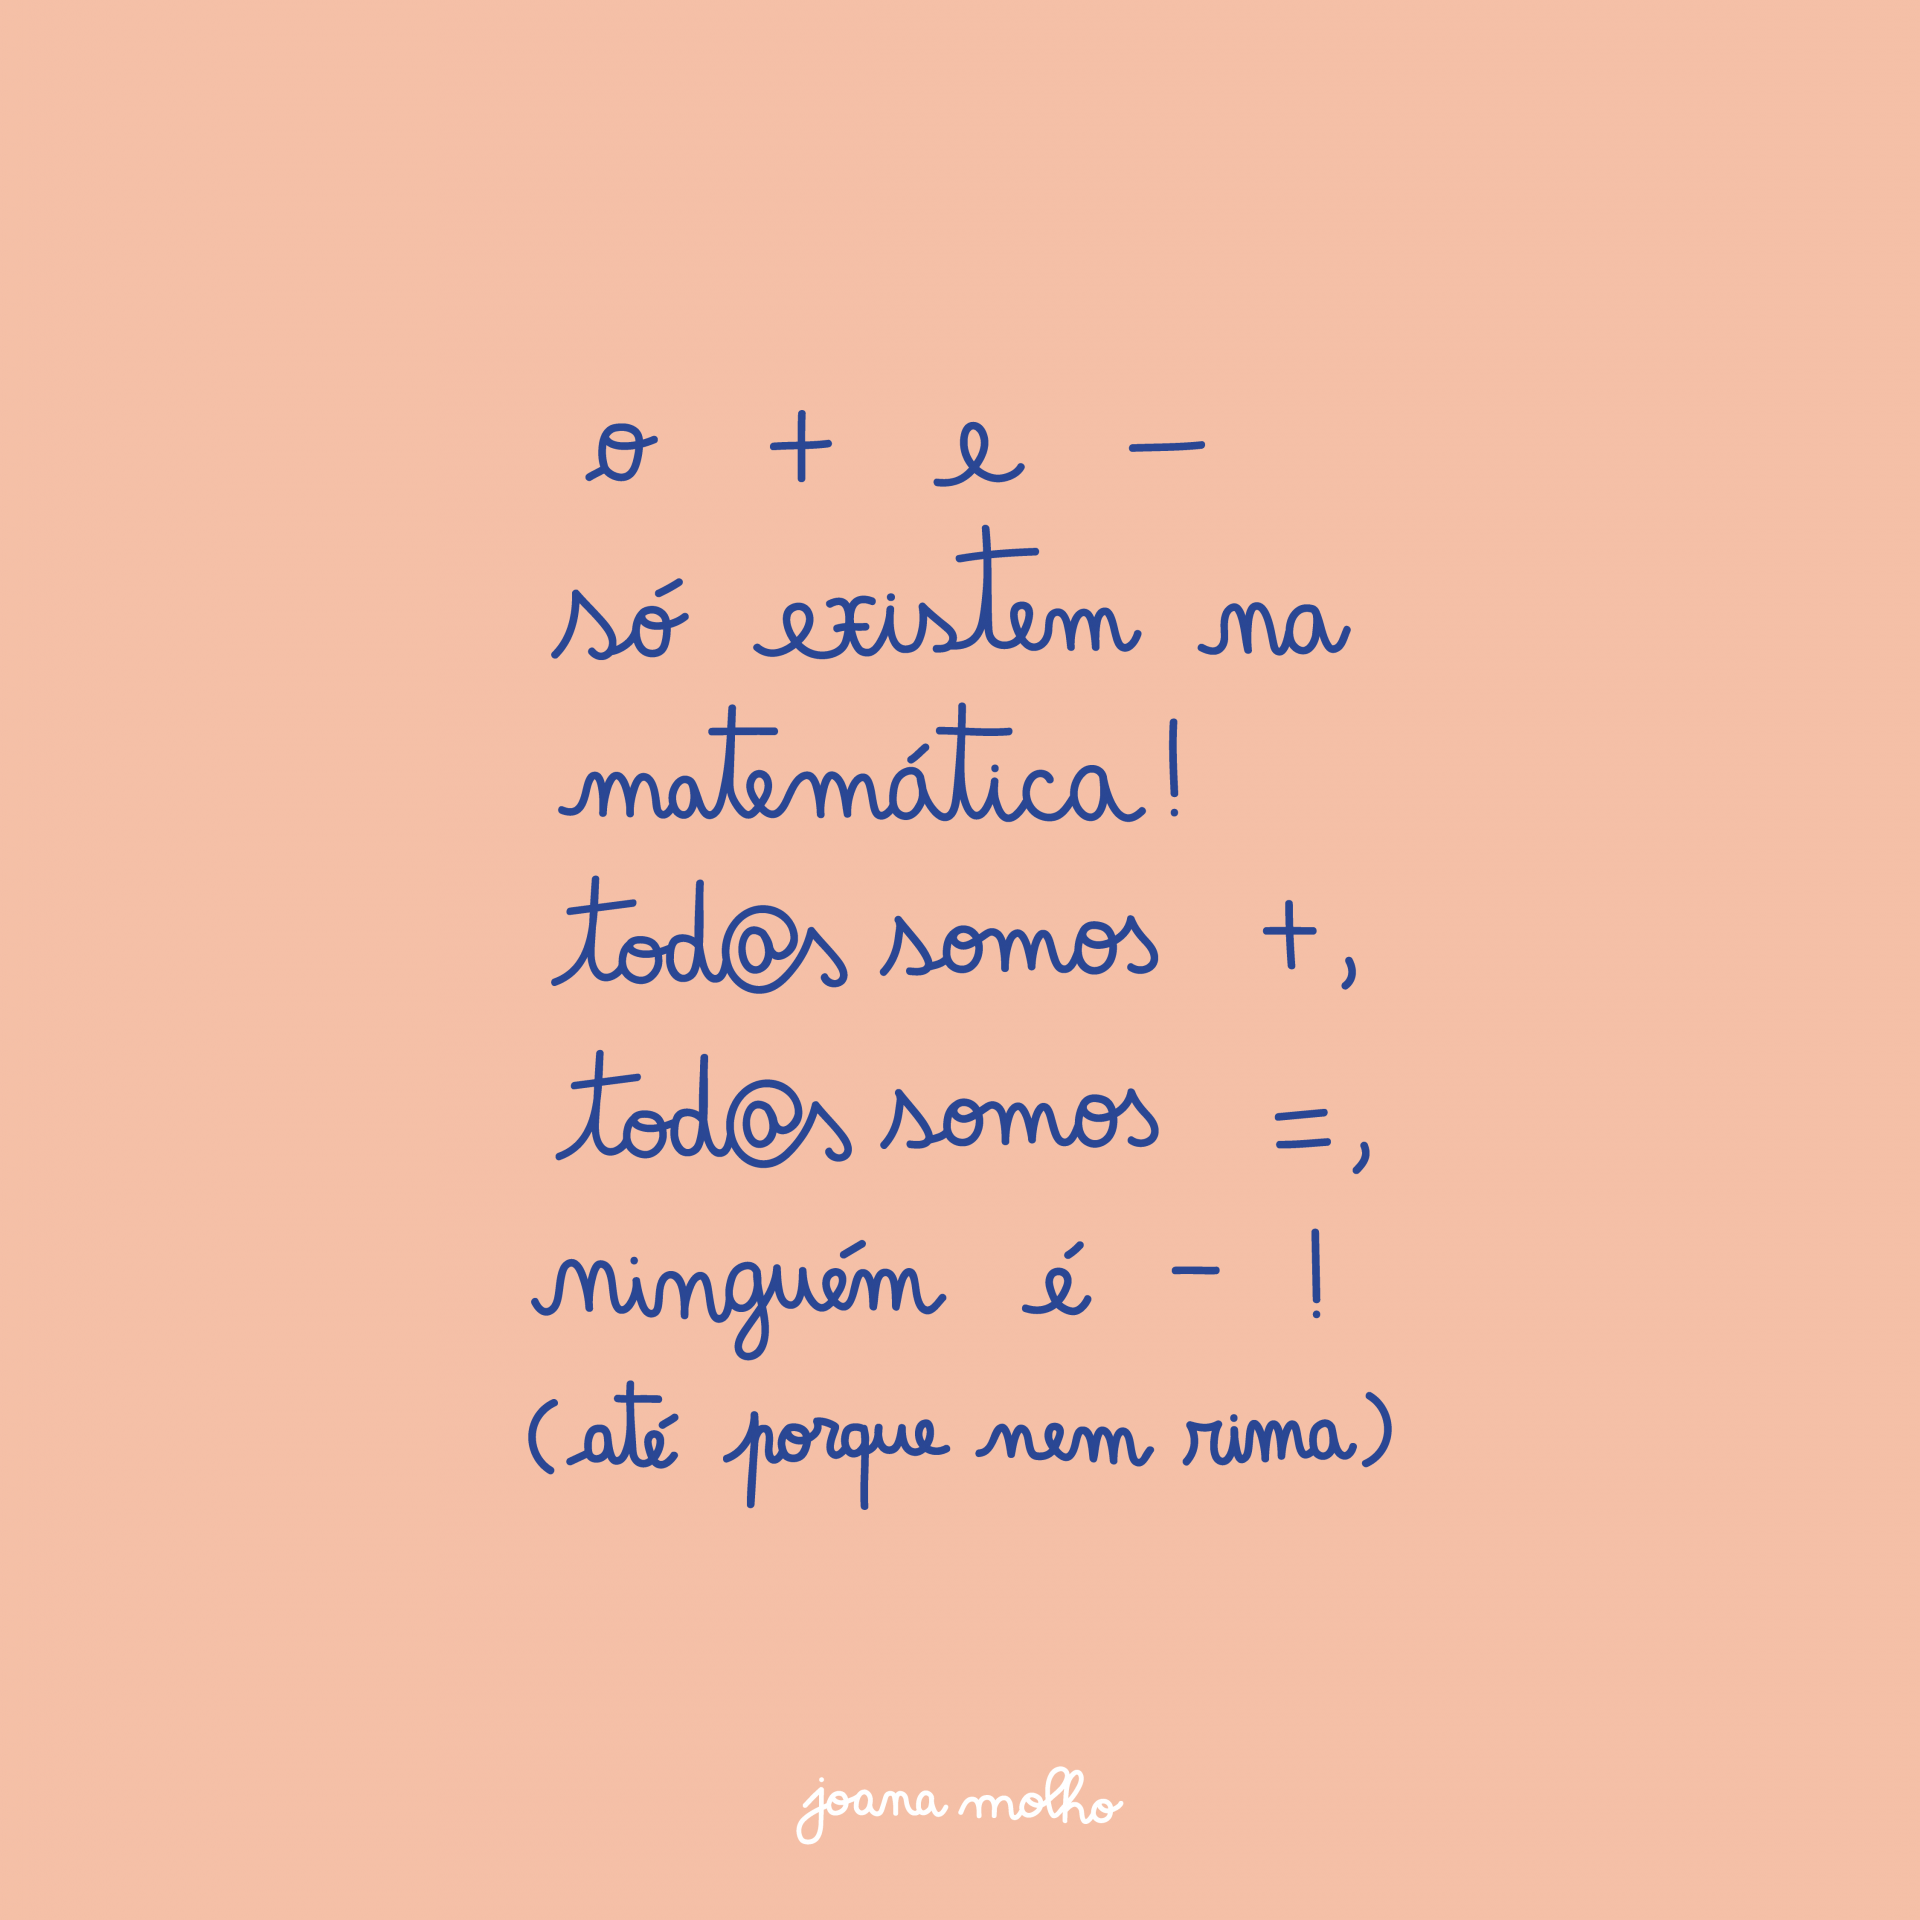 o + e -
só existem na
matemática!
tod@s somos +,
tod@s somos =,
ninguém é - !
(até porque nem rima)
joana molho